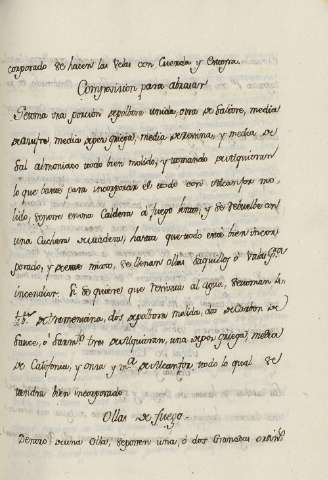 corporado se hacen las Velas con Cuerda y Estopa.
Composicion para abrasar
Se toma una porcion de polbora unida, otra de salitre, media
de azufre, media de pez griega, media de resina, y media de
Sal almoniaco todo bien molido, y tomando de alquitran
lo que baste para incorporar el todo con Alcanfor mo-
lido, se pone en una Caldera á fuego lento, y se rebuelbe con
una Cuchara de madera, hasta que todo esté bien incor-
porado, y de este mixto, se llenan ollas saquillos ó Valas pa
incendiar. Si se quiere que resista al agua, se toman
de trementina, dos de polbora molida, dos de Carbon de
Sauce, ó Sarmto tres de Alquitran, una de pez griega, media
de Califonia, y onza y ma de Alcanfor, todo lo qual se
tendra bien incorporado.
Ollas de fuego.
Dentro de una Olla, se ponen una, ó dos Granadas